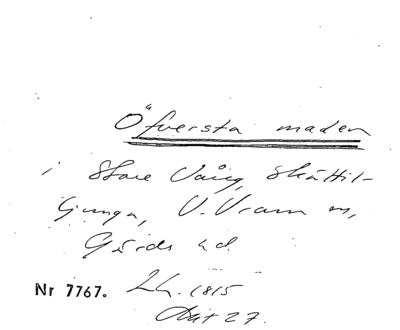 Öfversta maden
i Store Vång, Skättil-
ljunga, V. Vram sn,
Gärds hd
Nr 7767. LH. 1815
Akt 27.